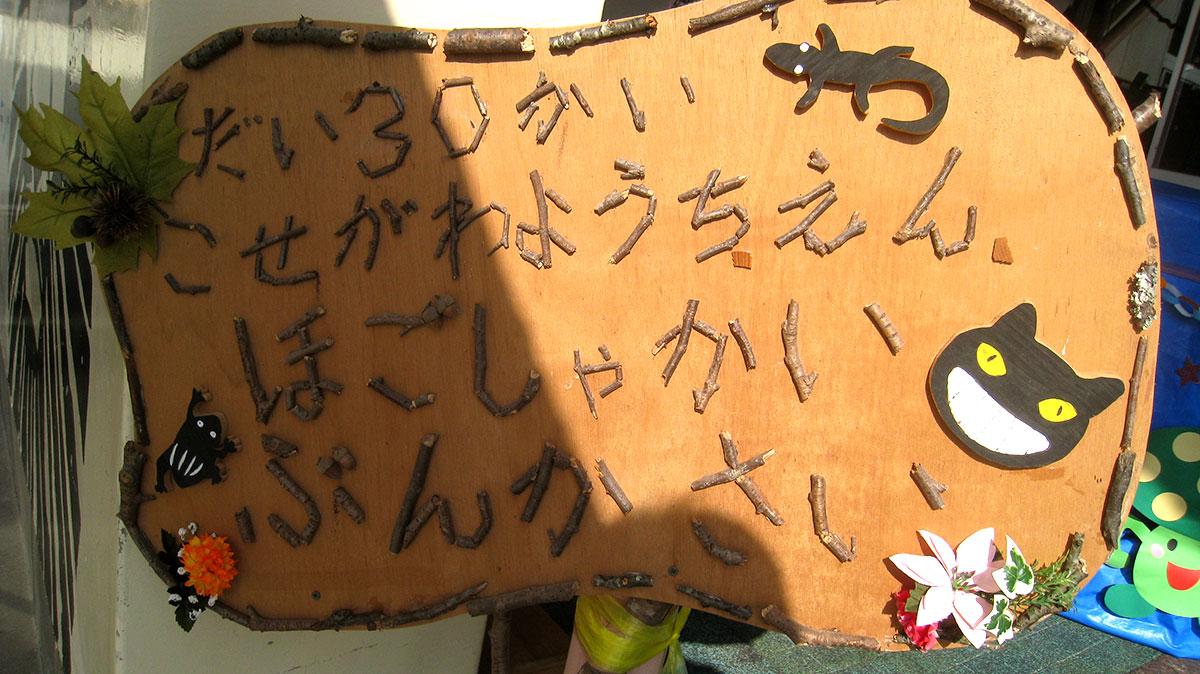 だい30かい
こせがわようちえん
ほごしゃかい
ぶんかさい